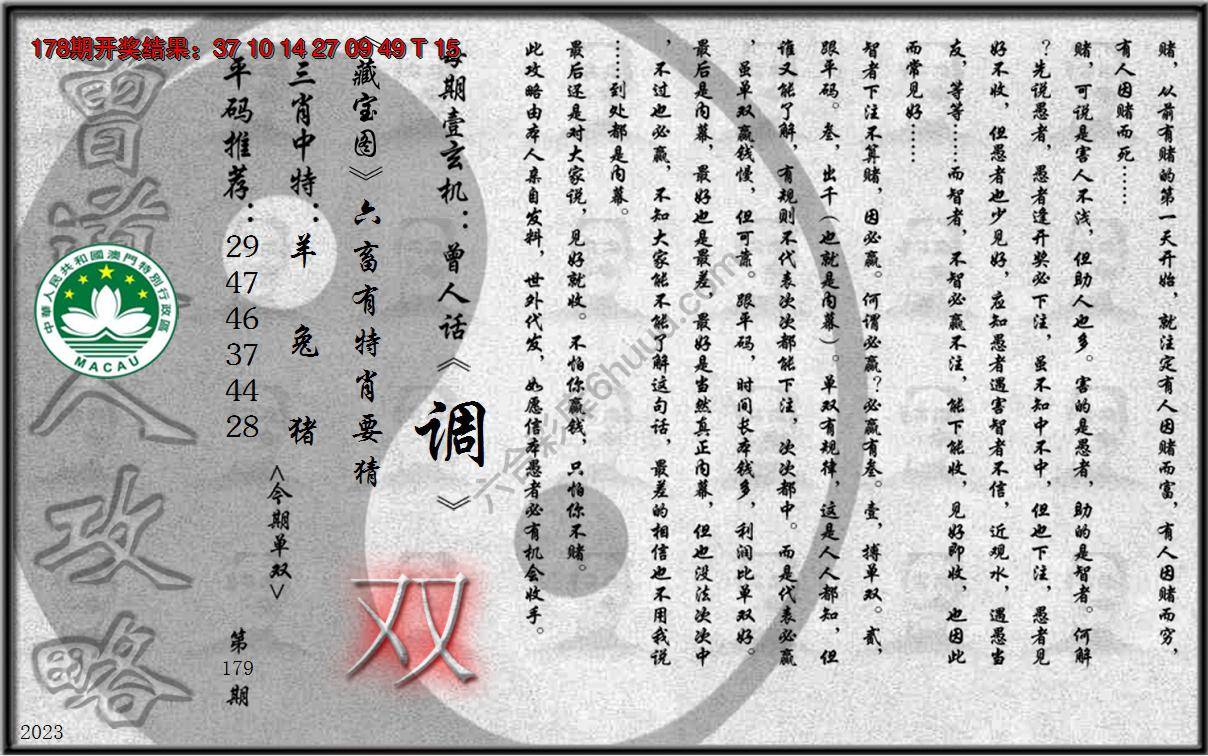 178期开奖结果：37 10 14 27 09 49 T 15
赌，从前有赌的第一天开始，就注定有人因赌而富，有人因赌而穷，
有人因赌而死……
赌，可说是害人不浅，但助人也多。害的是愚者，助的是智者。何解
？先说愚者，愚者逢开奖必下注，虽不知中不中，但也下注，愚者见
好不收，但愚者也少见好，应知愚者遇害智者不信，近观水，遇愚当
友，等等……而智者，不智必赢不注，能下能收，见好即收，也因此
而常见好……
智者下注不算赌，因必赢。何谓必赢？必赢有叁。壹，搏单双。贰，
跟平码。叁，出千（也就是内幕）。单双有规律，这是人人都知，但
谁又能了解，有规则不代表次次都能下注，次次都中。而是代表必赢
，虽单双赢钱慢，但可靠。跟平码，时间长本钱多，利润比单双好。
最后是内幕，最好也是最差，最好是当然真正内幕，但也没法次次中
，不过也必赢，不知大家能不能了解这句话，最差的相信也不用我说
……到处都是内幕。
最后还是对大家说，见好就收。不怕你赢钱，只怕你不赌。
此攻略由本人亲自发料，世外代发，如愿信本愚者必有机会收手。
每期壹玄机：曾人话《调》
《藏宝图》六畜有特肖要猜
双
三肖中特：羊 兔 猪
<今期单双>
平码推荐：29 47 46 37 44 28
第179期
曾道人攻略
中華人民共和國澳門特別行政區
MACAU
2023